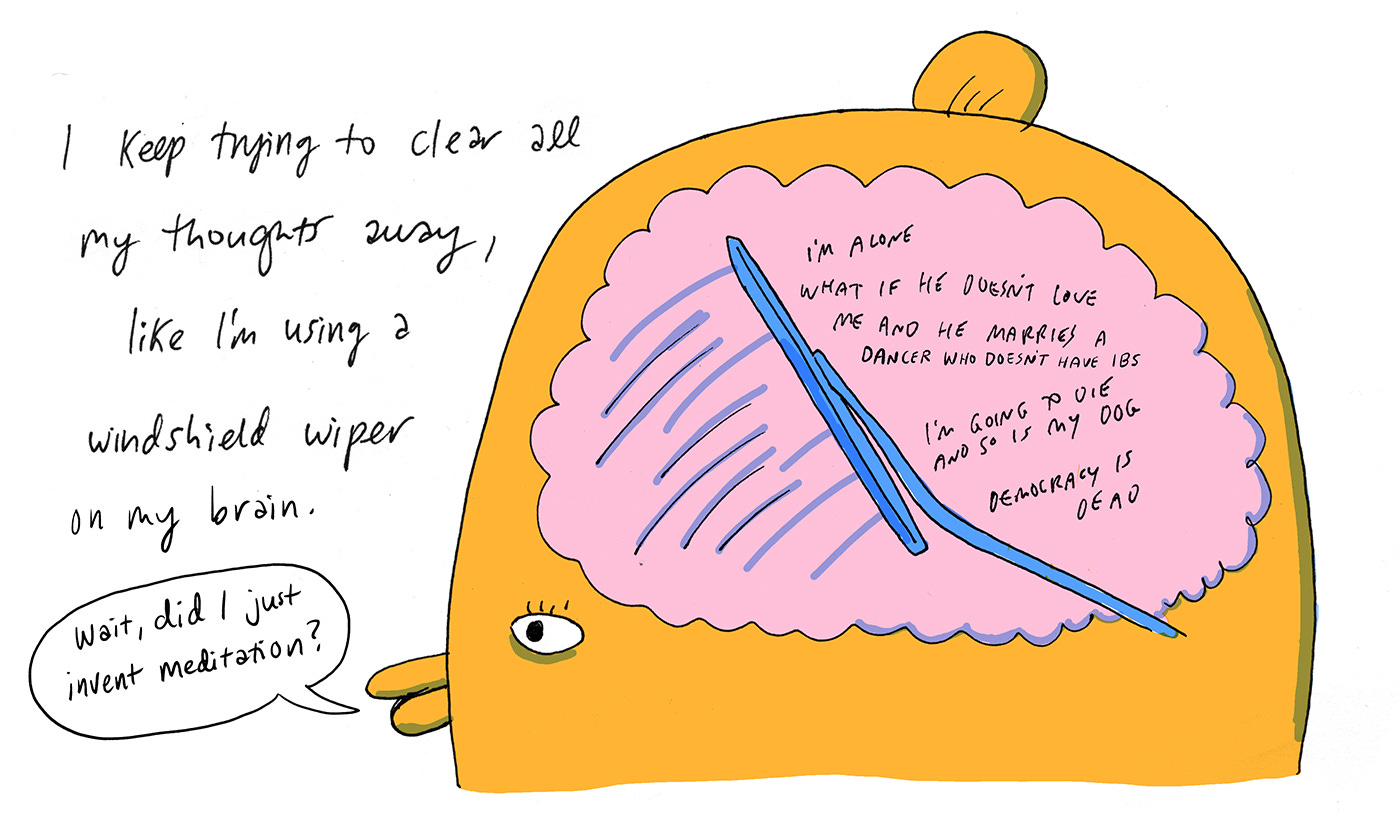 I keep trying to clear all
my thoughts away,
like I'm using a
windshield wiper
on my brain.
Wait, did I just
invent meditation?
I'M ALONE
WHAT IF HE DOESN'T LOVE
ME AND HE MARRIES A
DANCER WHO DOESN'T HAVE IBS
I'M GOING TO DIE
AND SO IS MY DOG
DEMOCRACY IS
DEAD